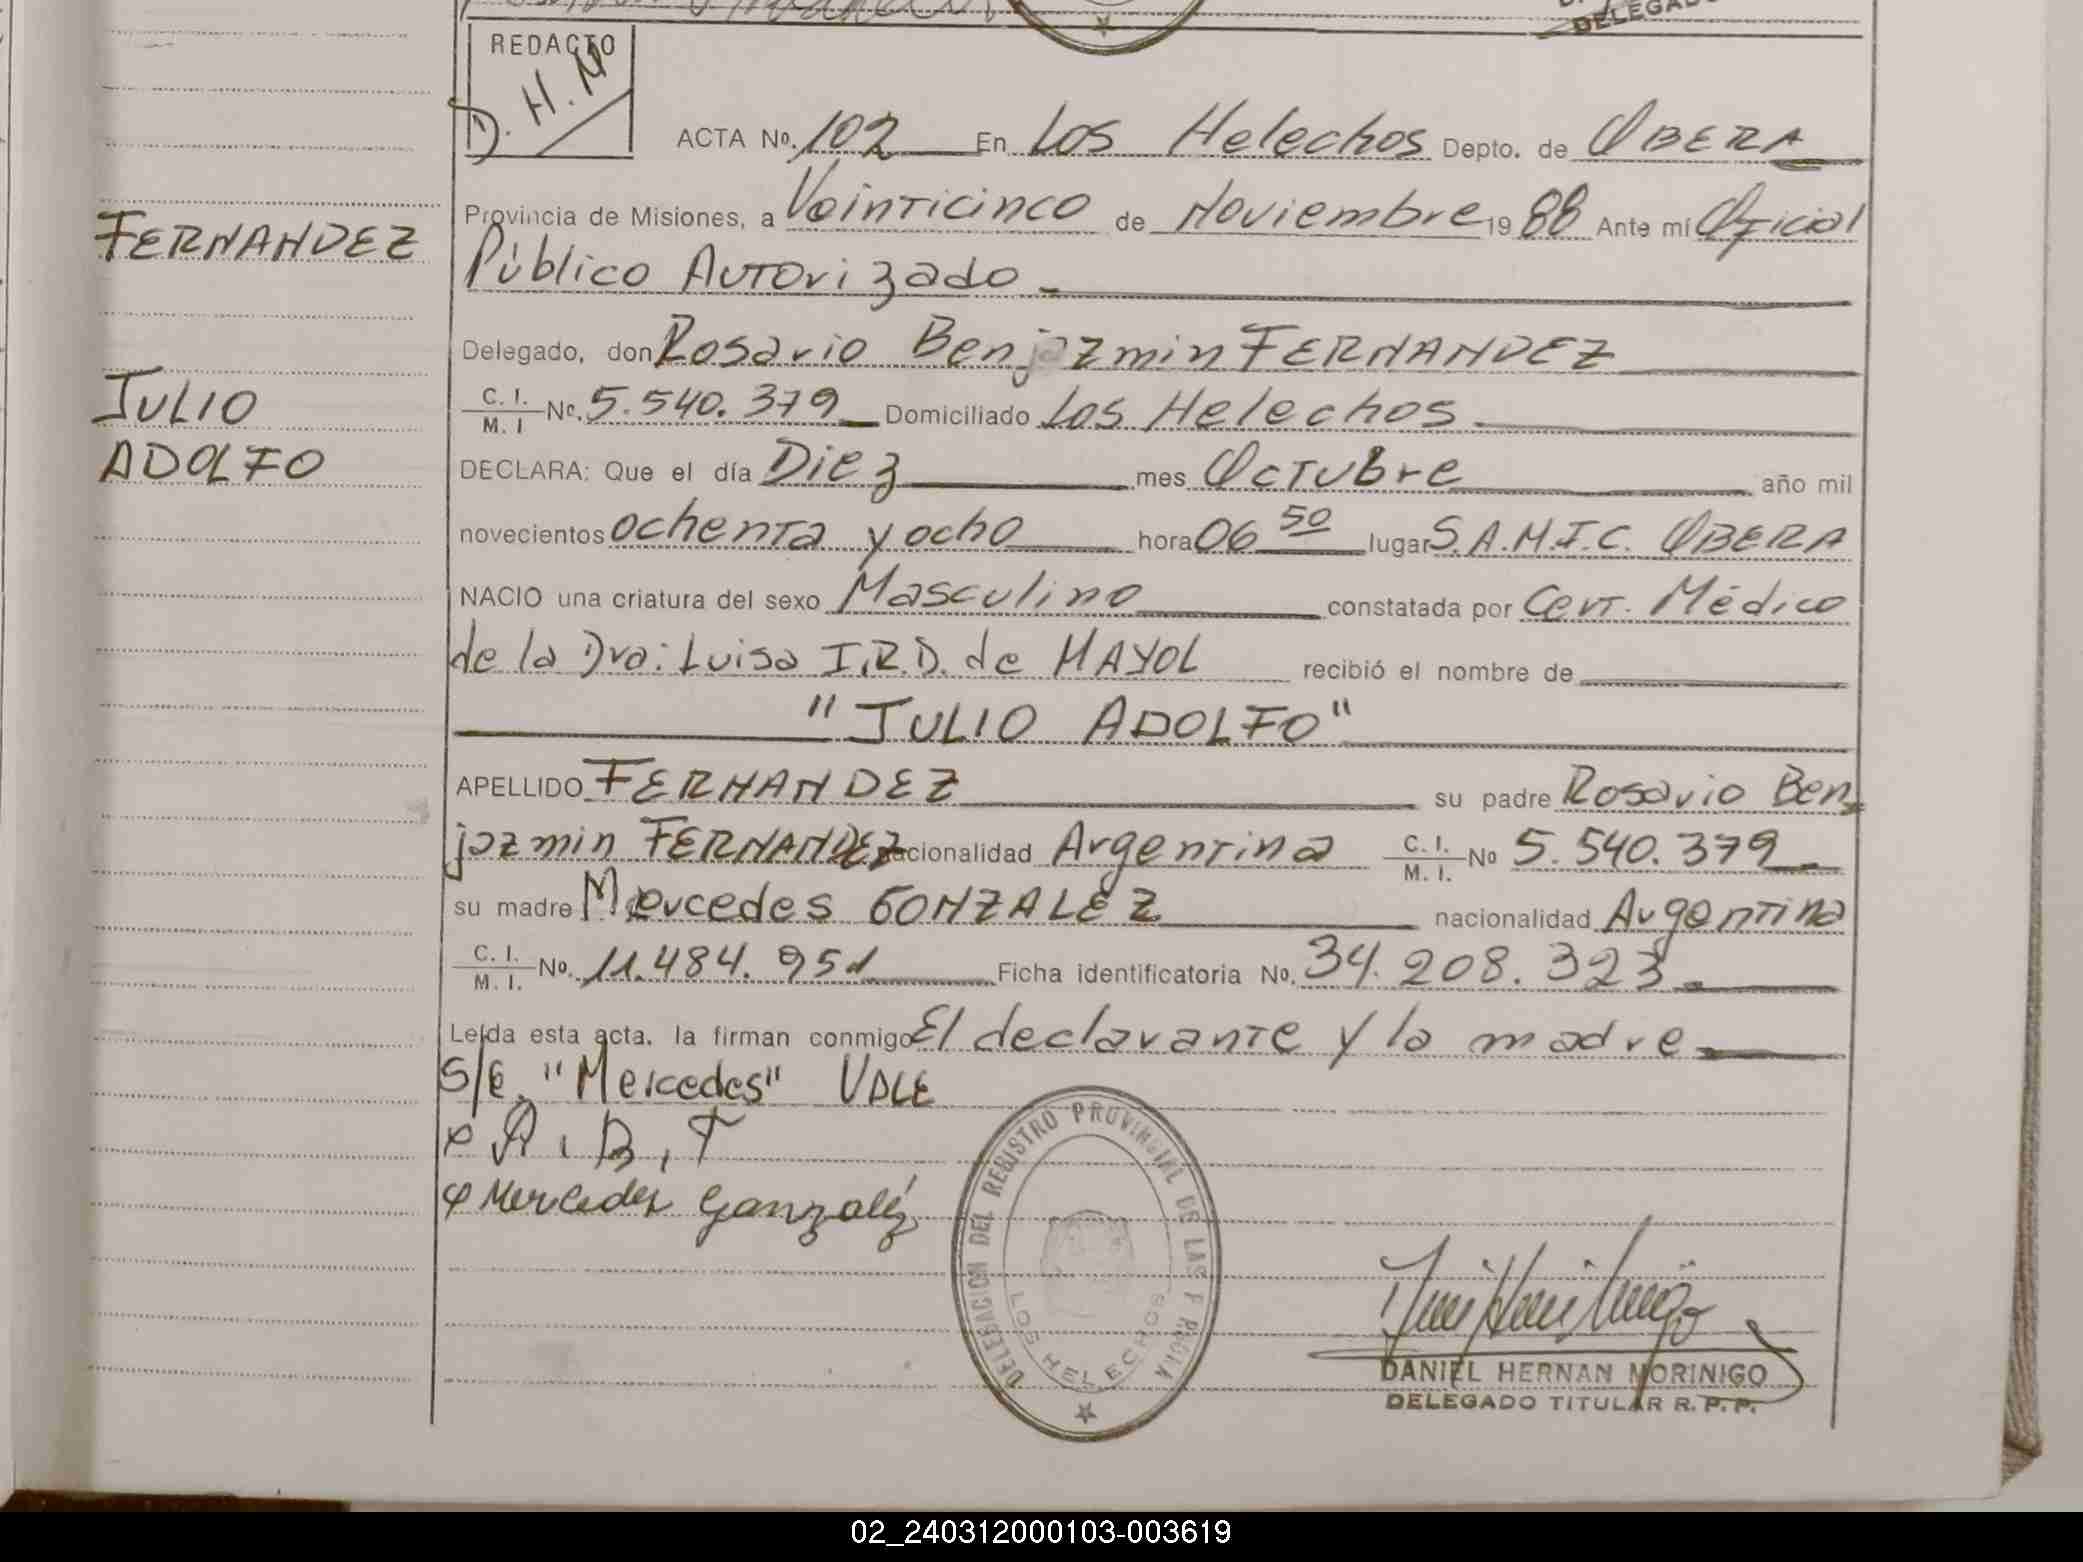 DELEGADO
REDACTO
D. H. M
ACTA Nº. 102 En Los Helechos Depto. de OBERA
Provincia de Misiones, a Veinticinco de Noviembre 19 88 Ante mí Oficial
FERNANDEZ
Público Autorizado
Delegado, don Rosario Benjazmin FERNANDEZ
JULIO
C. I. / M. I Nº. 5.540.379 Domiciliado Los Helechos
ADOLFO
DECLARA: Que el día Diez mes Octubre año mil
novecientos ochenta y ocho hora 06 50 lugar S.A.M.I.C. OBERA
NACIO una criatura del sexo Masculino constatada por Cert. Médico
de la Dra: Luisa I.R.D. de MAYOL recibió el nombre de
"JULIO ADOLFO"
APELLIDO FERNANDEZ su padre Rosario Ben-
jazmin FERNANDEZ nacionalidad Argentina C. I. / M. I. Nº 5.540.379
su madre Mercedes GONZALEZ nacionalidad Argentina
C. I. / M. I. Nº. 11.484.951 Ficha identificatoria Nº. 34.208.323
Leída esta acta, la firman conmigo El declarante y la madre
S/E. "Mercedes" VALE
R. B. F
Mercedes Gonzaléz
DELEGACION DEL REGISTRO PROVINCIAL DE LAS P
LOS HELECHOS
DANIEL HERNAN MORINIGO
DELEGADO TITULAR R. P. P.
02_240312000103-003619